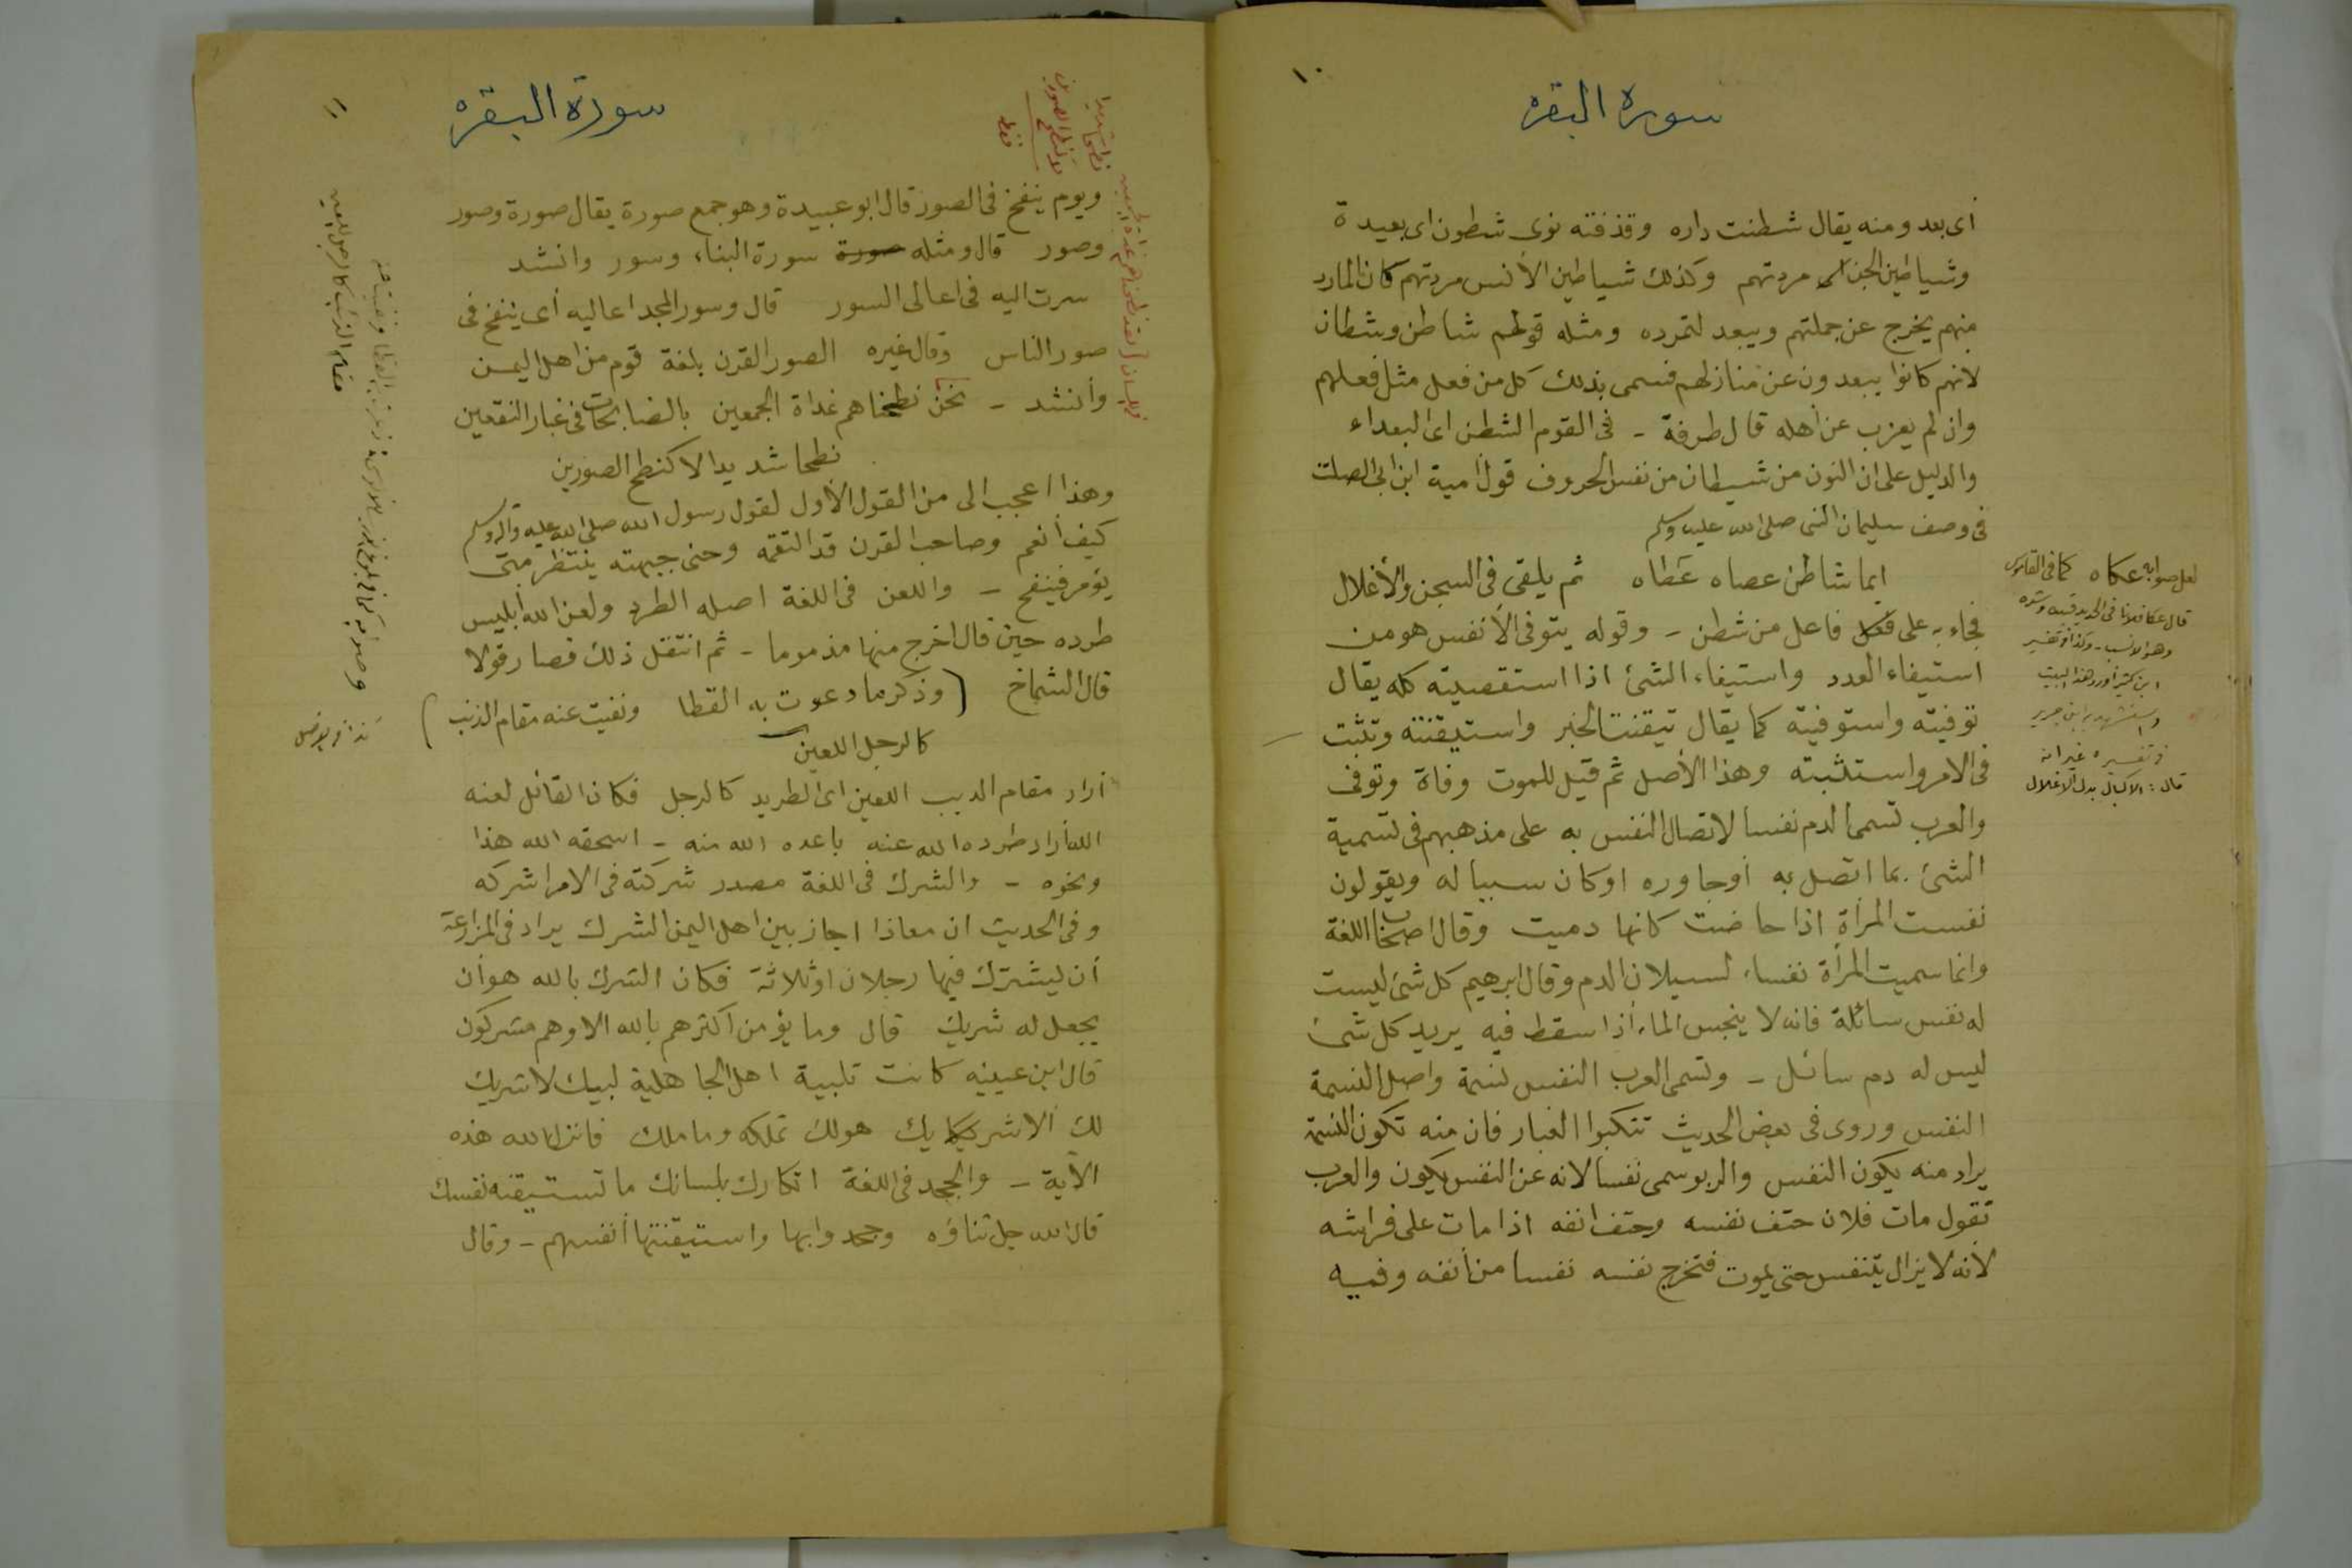 ١٠
سورة البقرة
أى بعد ومنه يقال شطنت داره وقذفته نوى شطون اى بعيدة
وشياطين الجن مردتهم وكذلك شياطين الأنس مردتهم كان المارد
منهم يخرج عن جملتهم ويبعد لتمرده ومثله قولهم شاطن وشطان
لانهم كانوا يبعدون عن منازلهم فسمى بذلك كل من فعل مثل فعلهم
وان لم يعزب عن أهله قال طرفة - فى القوم الشطن اى البعداء
والدليل على ان النون من شيطان من نفس الحروف قول أمية ابن ابى الصلت
فى وصف سليمان النبى صلى الله عليه وسلم
ايما شاطن عصاه عطاه ثم يلقى فى السجن والأغلال
فجاء به على فاعل من شطن - وقوله يتوفى الأنفس هو من
استيفاء العدد واستيفاء الشئ اذا استقصيته كله يقال
توفيته واستوفيته كما يقال تيقنت الخبر واستيقنته وتثبت
فى الامر واستثبته وهذا الأصل ثم قيل للموت وفاة وتوفى
والعرب تسمى الدم نفسا لاتصال النفس به على مذهبهم فى تسمية
الشئ بما اتصل به أوجاوره اوكان سببا له ويقولون
نفست المرأة اذا حاضت كانها دميت وقال اصحاب اللغة
وانما سميت المرأة نفساء لسيلان الدم وقال ابرهيم كل شئ ليست
له نفس سائلة فانه لا ينجس الماء أذا سقط فيه يريد كل شئ
ليس له دم سائل - وتسمى العرب النفس نسمة واصل النسمة
النفس وروى فى بعض الحديث تنكبوا الغبار فان منه تكون النسمة
يراد منه يكون النفس والربو سمى نفسا لانه عن النفس يكون والعرب
تقول مات فلان حتف نفسه وحتف انفه اذا مات على فراشه
لأنه لا يزال يتنفس حتى يموت فتخرج نفسه نفسا من أنفه وفميه
لعل صوابه عكاه كما فى القاموس
قال عكا فلانا فى الحديد قيده وشده
وهو الانسب - وكذا فى تفسير
ابن كثير أورد هذا البيت
واستشهد به ابن جرير
فى تفسيره غير انه
قال : الاكبال بدل الاغلال
١١
سورة البقرة
ويوم ينفخ فى الصور قال ابو عبيدة وهو جمع صورة يقال صورة وصور
وصور قال ومثله صورة سورة البناء وسور وانشد
سرت اليه فى اعالى السور قال وسور المجد اعاليه أى ينفخ فى
صور الناس وقال غيره الصور القرن بلغة قوم من اهل اليمن
وأنشد - نحن نطحناهم غداة الجمعين بالضابحات فى غبار النقعين
نطحا شديدا لا كنطح الصورين
وهذا اعجب الى من القول الأول لقول رسول الله صلى الله عليه وآله وسلم
كيف أنعم وصاحب القرن قد التقمه وحنى جبهته ينتظر متى
يؤمر فينفخ - واللعن فى اللغة اصله الطرد ولعن الله أبليس
طرده حين قال اخرج منها مذموما - ثم انتقل ذلك فصار قولا
قال الشماخ (وذكر ما دعوت به القطا ونفيت عنه مقام الذئب)
كالرجل اللعين
أراد مقام الذيب اللعين اى الطريد كالرجل فكان القائل لعنه
الله أراد طرده الله عنه باعده الله منه - اسحقه الله هذا
ونحوه - والشرك فى اللغة مصدر شركته فى الامر اشركه
وفى الحديث ان معاذا اجاز بين اهل اليمن الشرك يراد فى المزارعة
أن يشترك فيها رجلان اوثلاثة فكان الشرك بالله هو أن
يجعل له شريك قال وما يؤمن اكثرهم بالله الا وهم مشركون
قال ابن عيينه كانت تلبية اهل الجاهلية لبيك لا شريك
لك ألا شريك هولك تملكه وما ملك فانزل الله هذه
الآية - والجحد فى اللغة انكارك بلسانك ما تستيقنه نفسك
قال الله جل ثناؤه وجحدوا بها واستيقنتها أنفسهم - وقال
نطحا شديدا
كنطح الصورين
فقط
لقد نطحناهم غداة الجمعين
مقام الذئب كالرجل اللعين